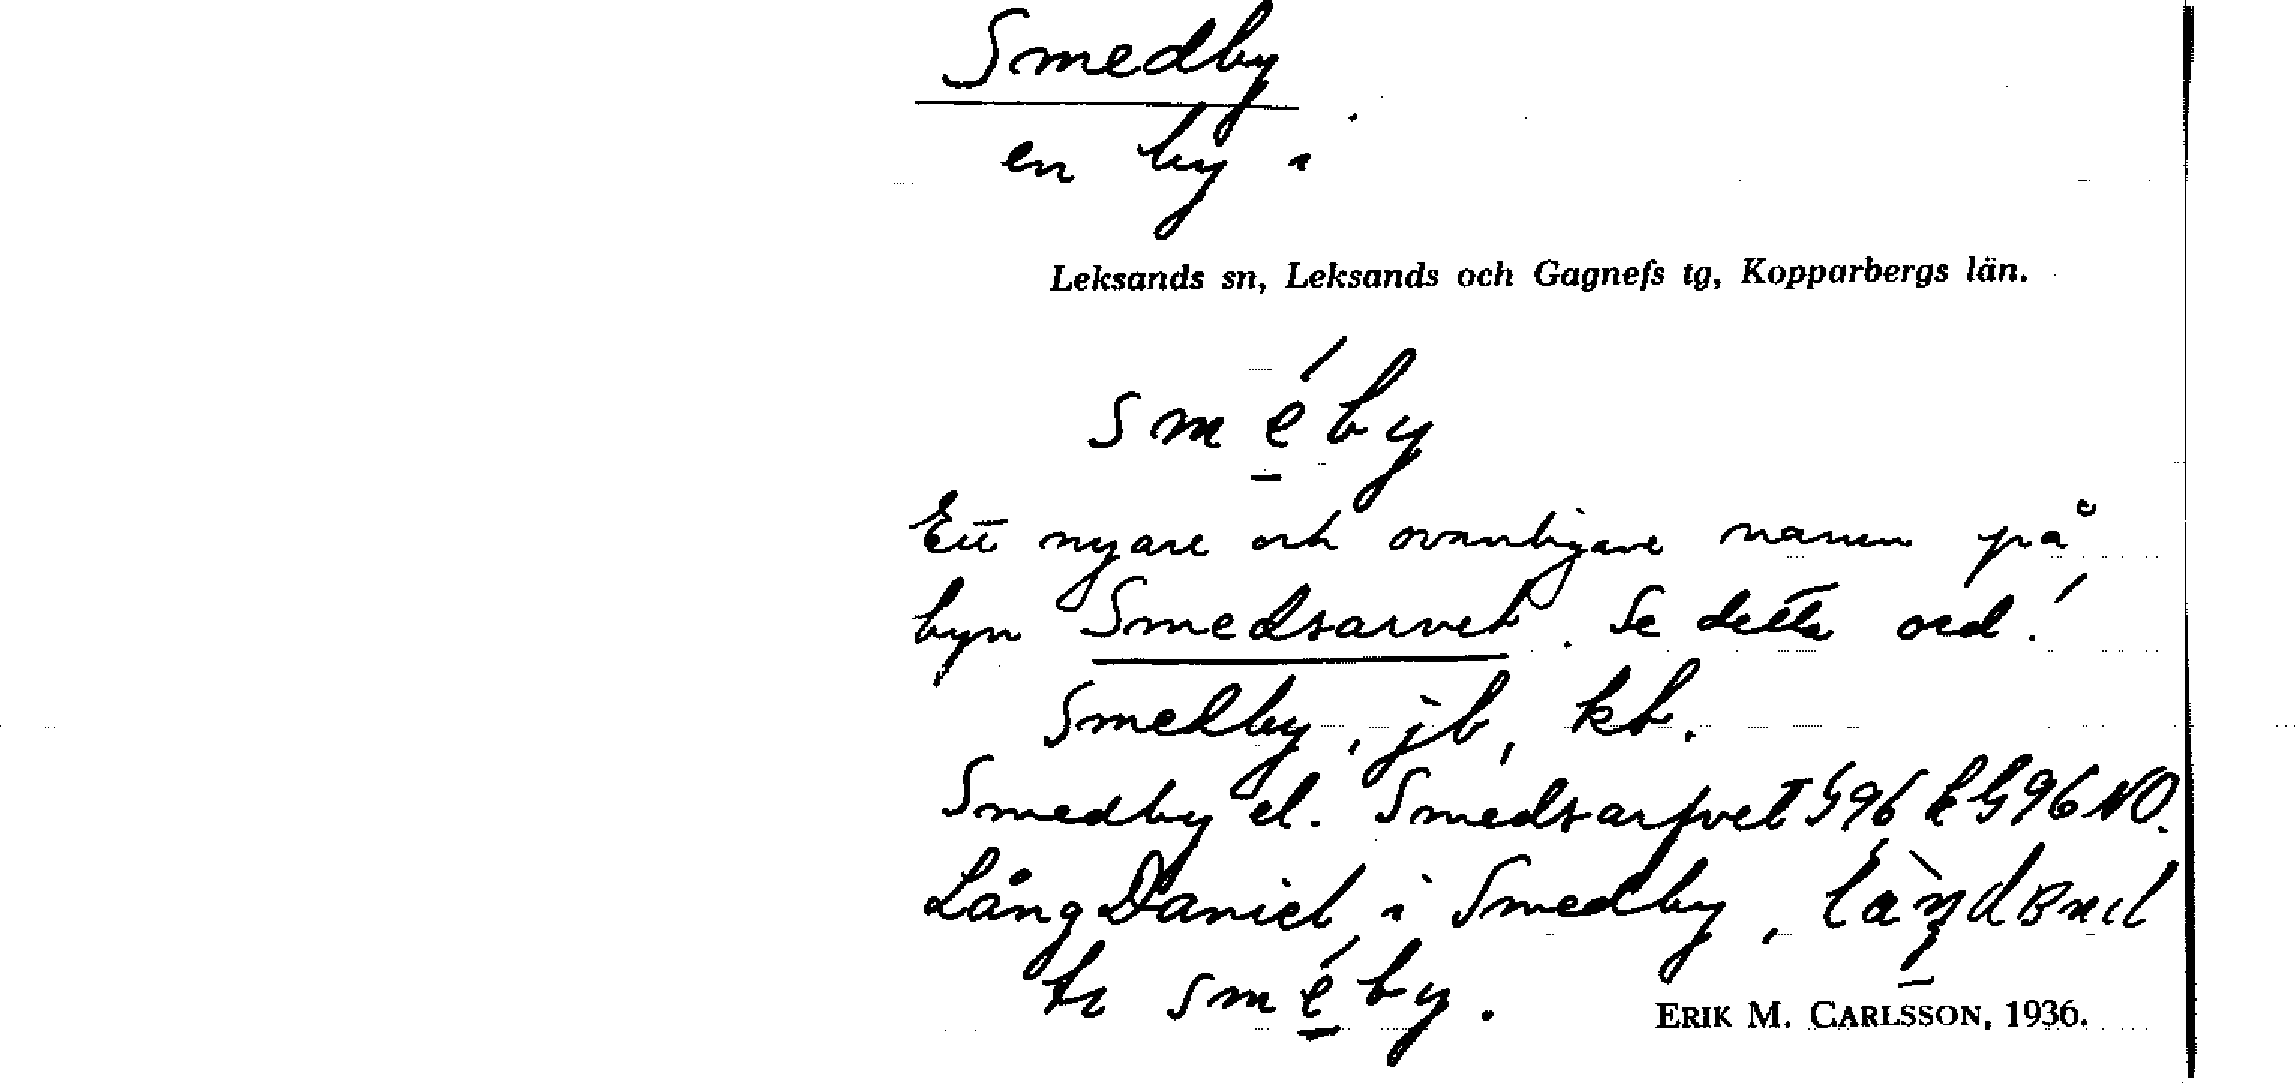 Smedby
en by i
Leksands sn, Leksands och Gagnefs tg, Kopparbergs län.
sméby
Ett nyare och ovanligare namn på
byn Smedsarvet. Se detta ord!
Smedby, jb, kb.
Smedby el. Smedsarfvet G96 NO.
Lång Daniel i Smedby,
sméby.
ERIK M. CARLSSON, 1936.